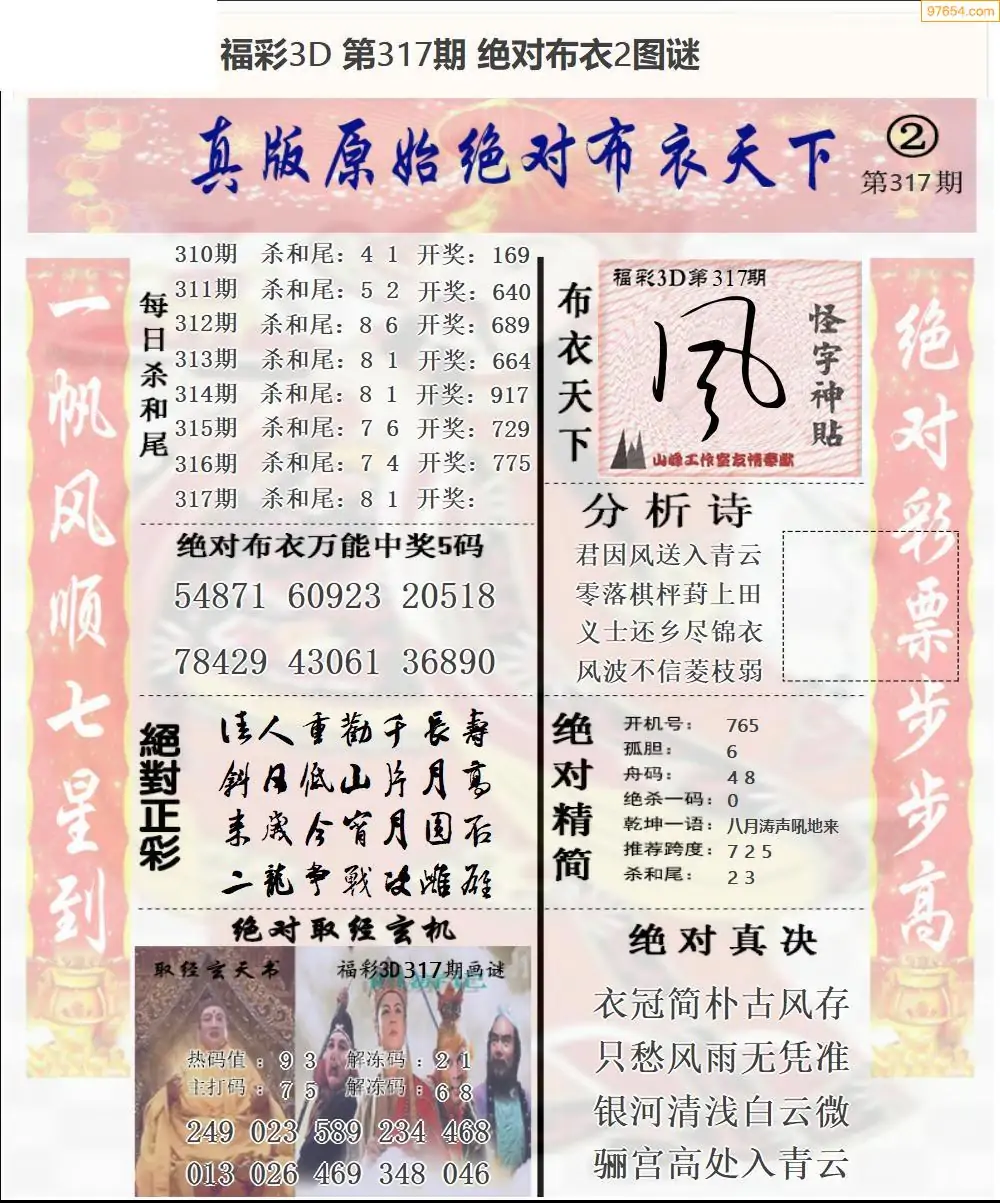 97654.com
福彩3D 第317期 绝对布衣2图谜
真版原始绝对布衣天下
②
第317期
一帆风顺七星到
每日杀和尾
310期 杀和尾：4 1 开奖：169
311期 杀和尾：5 2 开奖：640
312期 杀和尾：8 6 开奖：689
313期 杀和尾：8 1 开奖：664
314期 杀和尾：8 1 开奖：917
315期 杀和尾：7 6 开奖：729
316期 杀和尾：7 4 开奖：775
317期 杀和尾：8 1 开奖：
绝对布衣万能中奖5码
54871 60923 20518
78429 43061 36890
絕對正彩
佳人重勸千長壽
斜日低山片月高
来歲今宵月圆石
二龍争戰决雌雄
绝对取经玄机
取经玄天书
福彩3D317期画谜
热码值：9 3 解冻码：2 1
主打码：7 5 解冻码：6 8
249 023 589 234 468
013 026 469 348 046
布衣天下
福彩3D第317期
风
怪字神貼
山峰工作室友情奉献
分析诗
君因风送入青云
零落棋枰葑上田
义士还乡尽锦衣
风波不信菱枝弱
绝对精简
开机号：765
孤胆：6
舟码：4 8
绝杀一码：0
乾坤一语：八月涛声吼地来
推荐跨度：7 2 5
杀和尾：2 3
绝对真决
衣冠简朴古风存
只愁风雨无凭准
银河清浅白云微
骊宫高处入青云
绝对彩票步步高